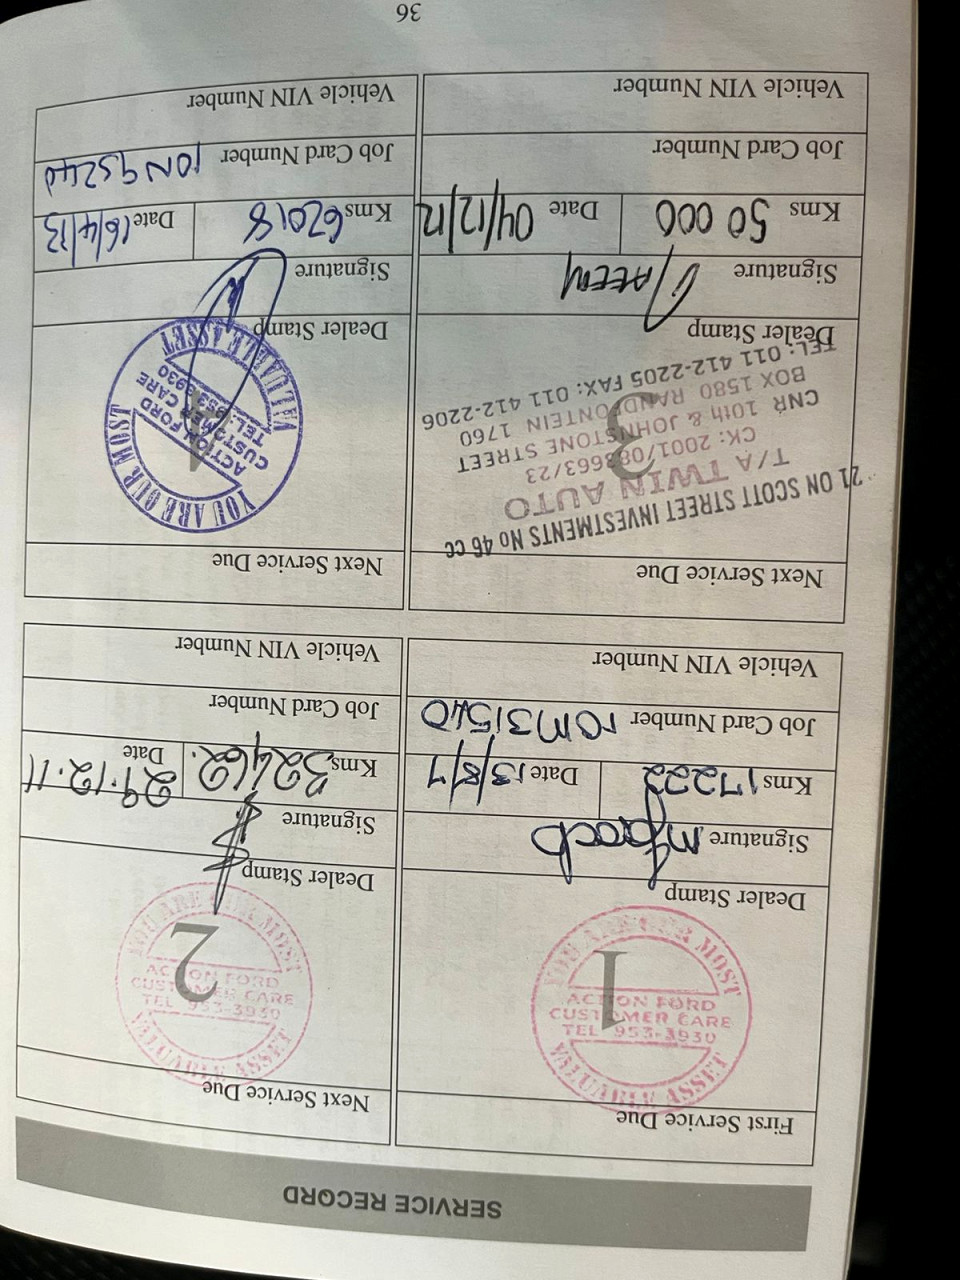 SERVICE RECORD
First Service Due
YOU ARE OUR MOST
ACTION FORD
CUSTOMER CARE
TEL 953-3930
VALUABLE ASSET
1
Dealer Stamp
Signature
Kms 17222 Date 13/8/
Job Card Number
Vehicle VIN Number
Next Service Due
YOU ARE OUR MOST
ACTION FORD
CUSTOMER CARE
TEL 953-3930
VALUABLE ASSET
2
Dealer Stamp
Signature
Kms 32462. Date 29.12.11
Job Card Number
Vehicle VIN Number
Next Service Due
21 ON SCOTT STREET INVESTMENTS No 46 cc
T/A TWIN AUTO
CK: 2001/083663/23
CNR 10th & JOHNSTONE STREET
BOX 1580 RANDFONTEIN 1760
TEL: 011 412-2205 FAX: 011 412-2206
3
Dealer Stamp
Signature
Kms 50 000 Date 04/12/12
Job Card Number
Vehicle VIN Number
Next Service Due
YOU ARE OUR MOST
ACTION FORD
CUSTOMER CARE
TEL: 953-3930
VALUABLE ASSET
4
Dealer Stamp
Signature
Kms 62018 Date 16/4/13
Job Card Number 10N95240
Vehicle VIN Number
36